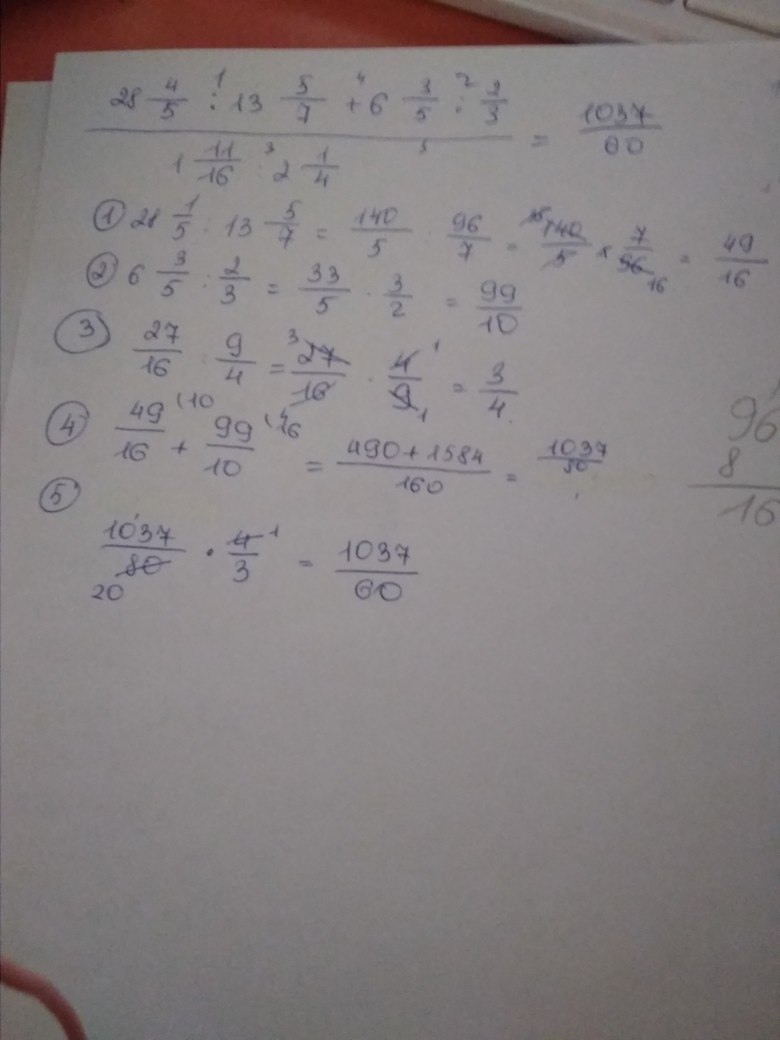 28 4/5 : 13 5/7 + 6 3/5 : 2/3 / 1 11/16 : 2 1/4 = 1037/60
① 28 1/5 : 13 5/7 = 140/5 · 96/7 = 140/5 × 7/96 = 49/16
② 6 3/5 : 2/3 = 33/5 · 3/2 = 99/10
③ 27/16 · 9/4 = 27/16 · 4/9 = 3/4
④ 49/16 + 99/10 = 490+1584/160 = 1037/80
⑤
1037/80 · 4/3 = 1037/60
96
8
16